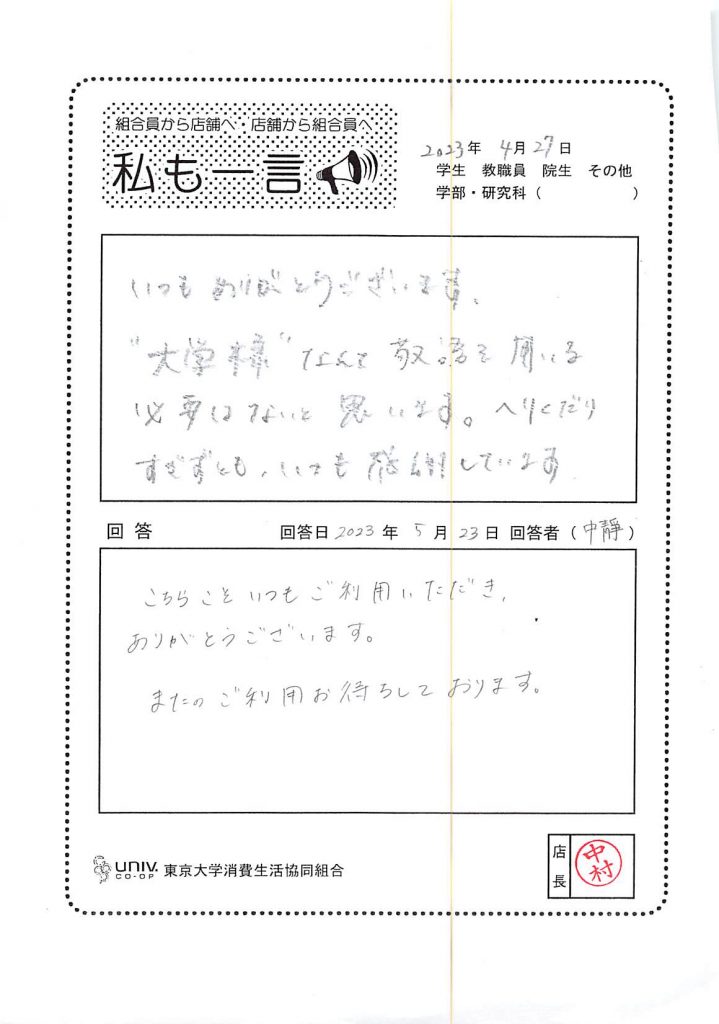 組合員から店舗へ・店舗から組合員へ
私も一言
2023年 4月27日
学生 教職員 院生 その他
学部・研究科（ ）
いつも ありがとうございます、
"大学様" なんて 敬語を 用いる
必要はないと 思います。へりくだり
すぎずとも、いつも 感謝しています
回答 回答日 2023年 5月 23日 回答者（中靜）
こちらこそ いつも ご利用いただき、
ありがとうございます。
またの ご利用お待ちして おります。
UNIV. CO-OP 東京大学消費生活協同組合
店長
中村